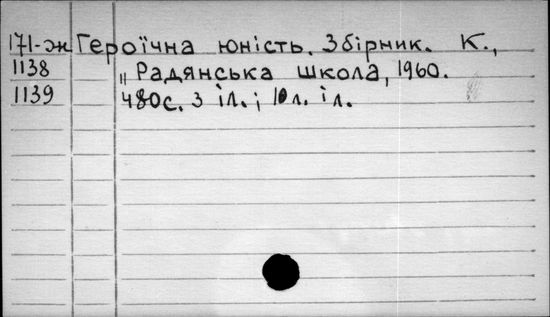 171-ж Героїчна юність. Збірник. К.,
1138 „Радянська школа, 1960.
1139 480с. з іл.; 10л. іл.